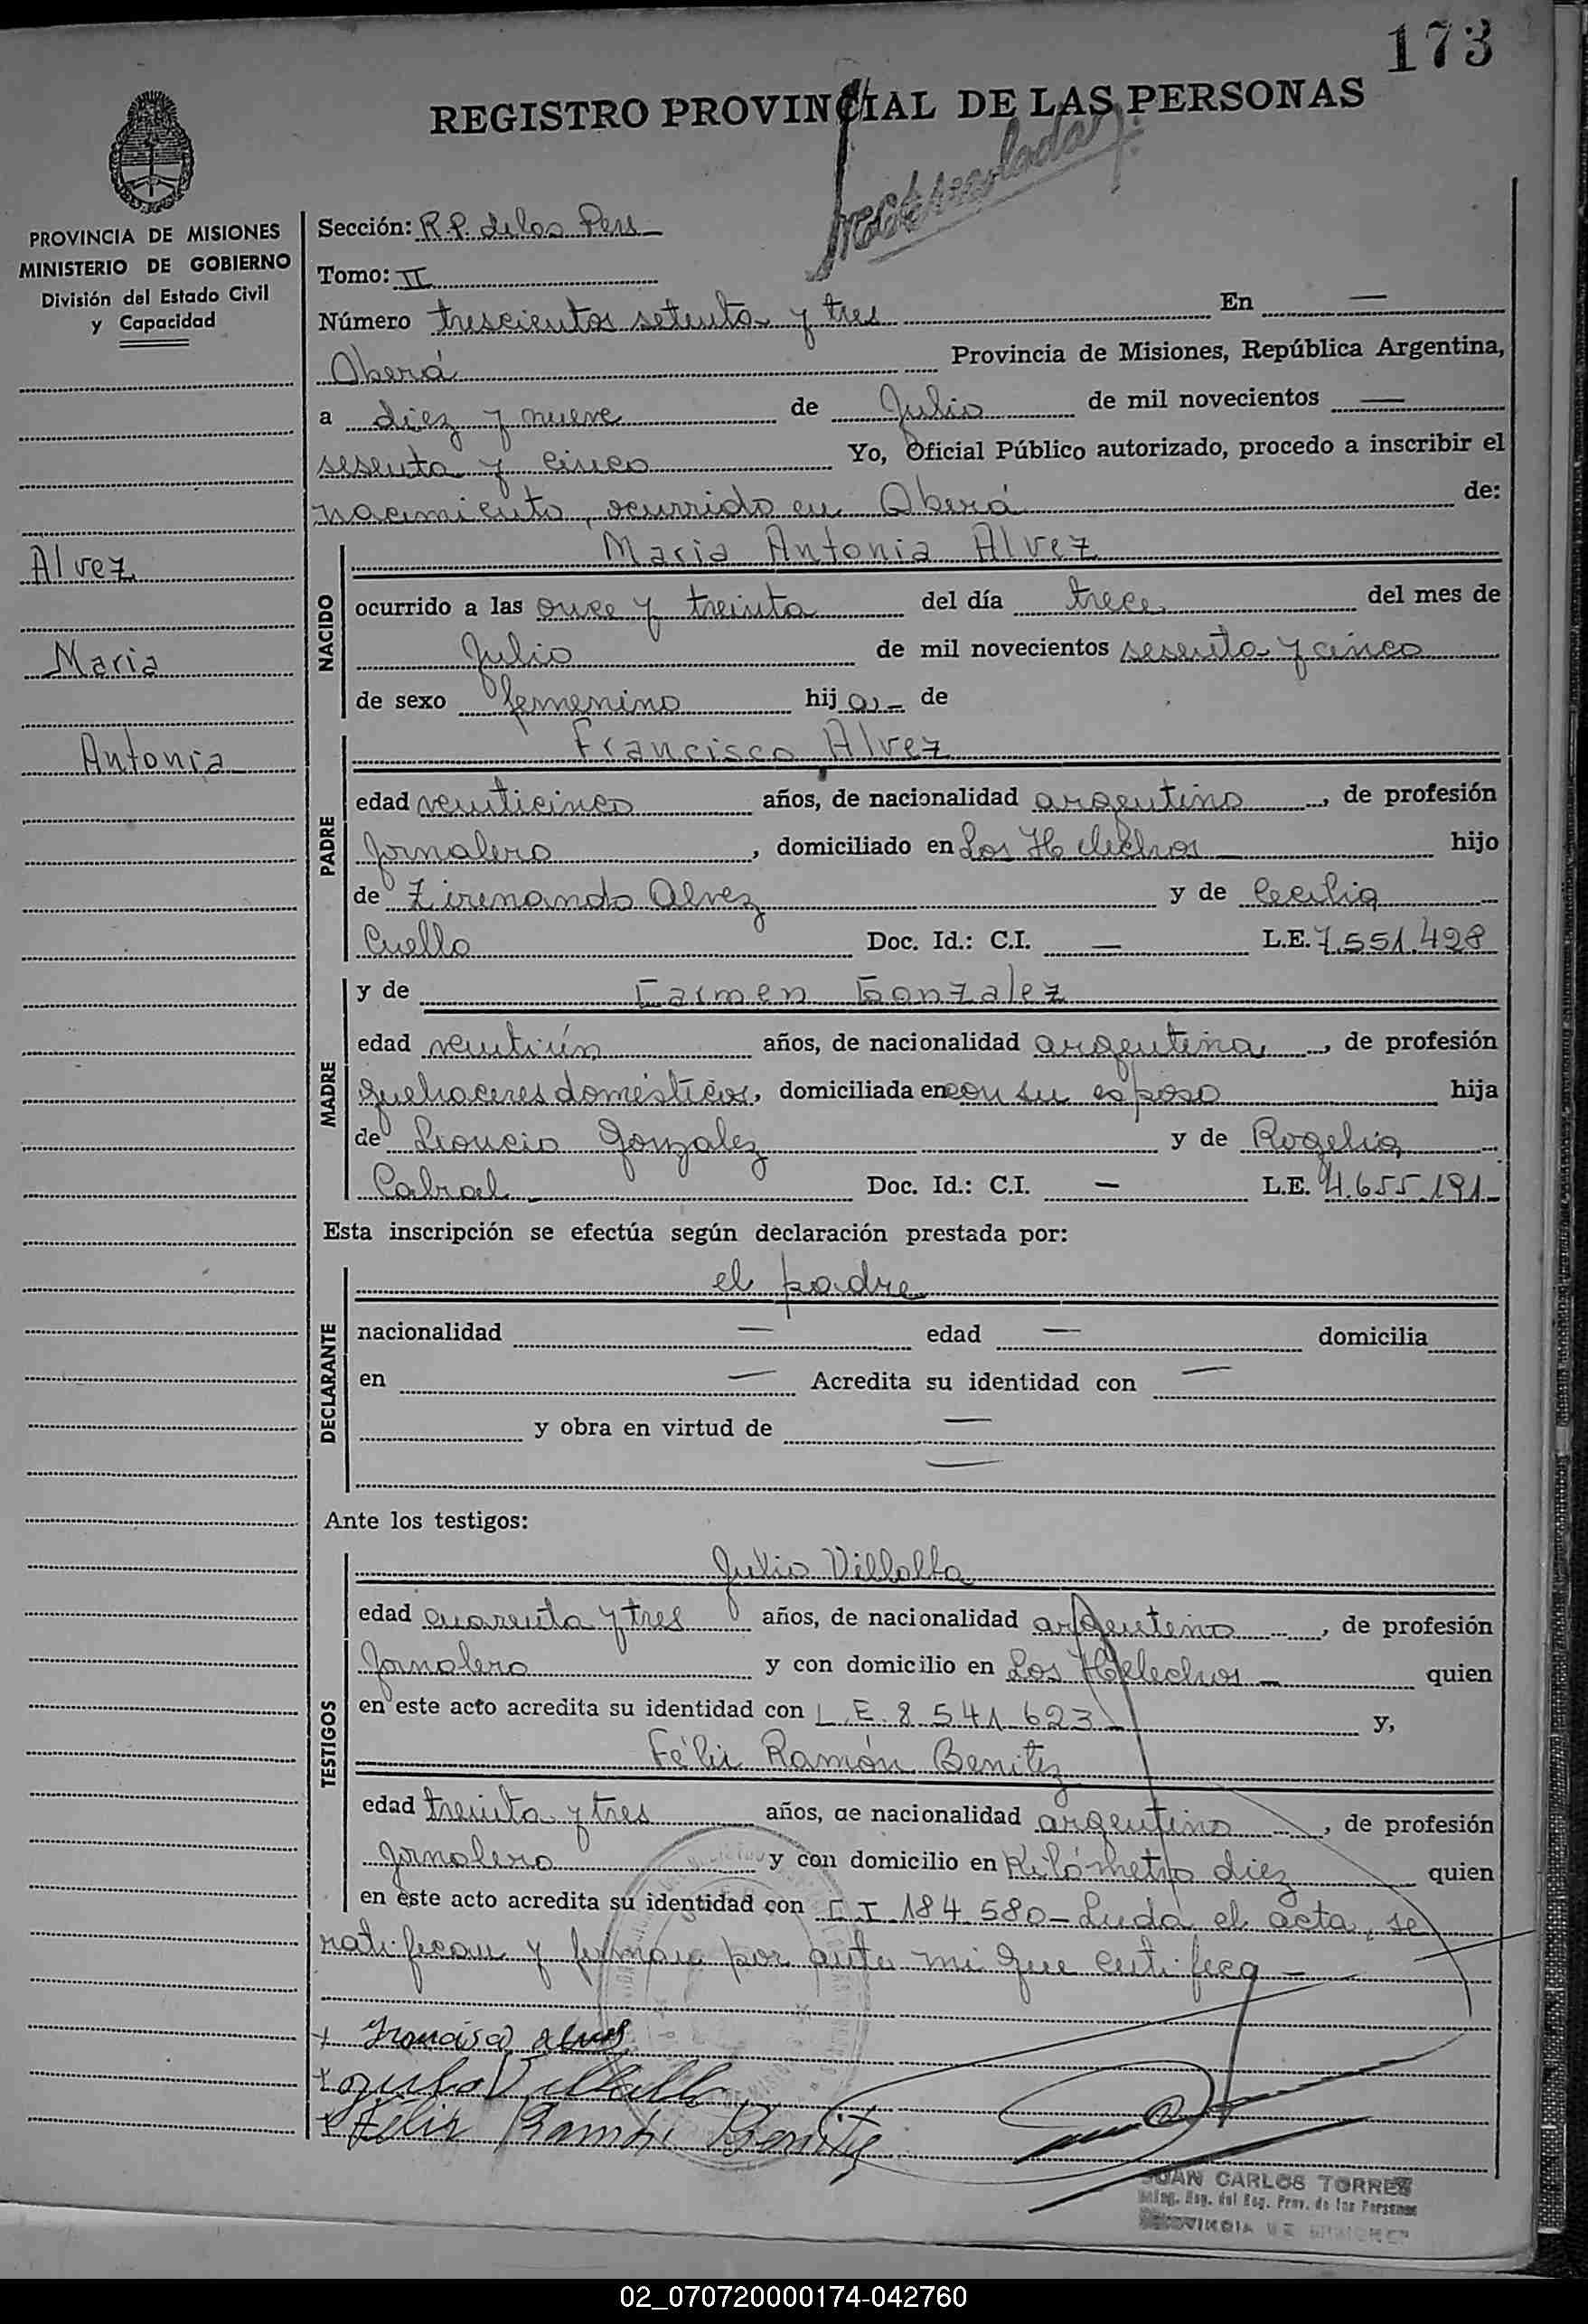 173
REGISTRO PROVINCIAL DE LAS PERSONAS
PROVINCIA DE MISIONES
MINISTERIO DE GOBIERNO
División del Estado Civil
y Capacidad
Alvez
Maria
Antonia
Sección: R.P. de las Pers
Tomo: II
Número trescientos setenta y tres En —
Oberá Provincia de Misiones, República Argentina,
a diez y nueve de Julio de mil novecientos —
sesenta y cinco Yo, Oficial Público autorizado, procedo a inscribir el
nacimiento, ocurrido en Oberá de:
NACIDO
Maria Antonia Alvez
ocurrido a las once y treinta del día trece del mes de
Julio de mil novecientos sesenta y cinco
de sexo femenino hija — de
PADRE
Francisco Alvez
edad veinticinco años, de nacionalidad argentino, de profesión
Jornalero, domiciliado en Los Helechos — hijo
de Zirenando Alvez y de Cecilia
Cuello Doc. Id.: C.I. — L.E. 7.551.428
MADRE
y de Carmen Gonzalez
edad veintiún años, de nacionalidad argentina, de profesión
quehaceres domésticos, domiciliada en con su esposo hija
de Leoncio Gonzalez y de Rogelia
Cabral — Doc. Id.: C.I. — L.E. 4.655.191—
Esta inscripción se efectúa según declaración prestada por:
DECLARANTE
el padre
nacionalidad — edad — domicilia
en — Acredita su identidad con —
y obra en virtud de —
—
Ante los testigos:
TESTIGOS
Julio Villalba
edad cuarenta y tres años, de nacionalidad argentino, de profesión
Jornalero y con domicilio en Los Helechos — quien
en este acto acredita su identidad con L.E. 8.541.623 y,
Félix Ramón Benitez
edad treinta y tres años, de nacionalidad argentino, de profesión
Jornalero y con domicilio en Kilómetro diez quien
en este acto acredita su identidad con C I 184.580 — Leida el acta, se
ratifican y firman por ante mi que certifico —
x Francisco Alves
x Julio Villalba
x Félix Ramón Benitez
JUAN CARLOS TORRES
Reg. Prov. de las Personas
PROVINCIA DE MISIONES
02_070720000174-042760